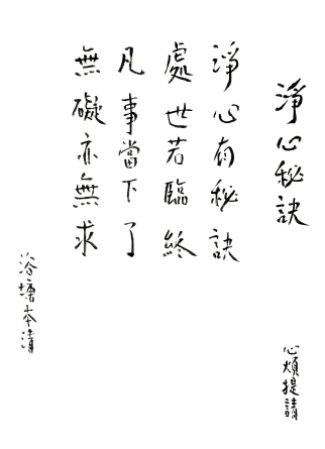 淨心秘訣
心煩提請
淨心有秘訣
處世若臨終
凡事當下了
無礙亦無求
浴塘本清